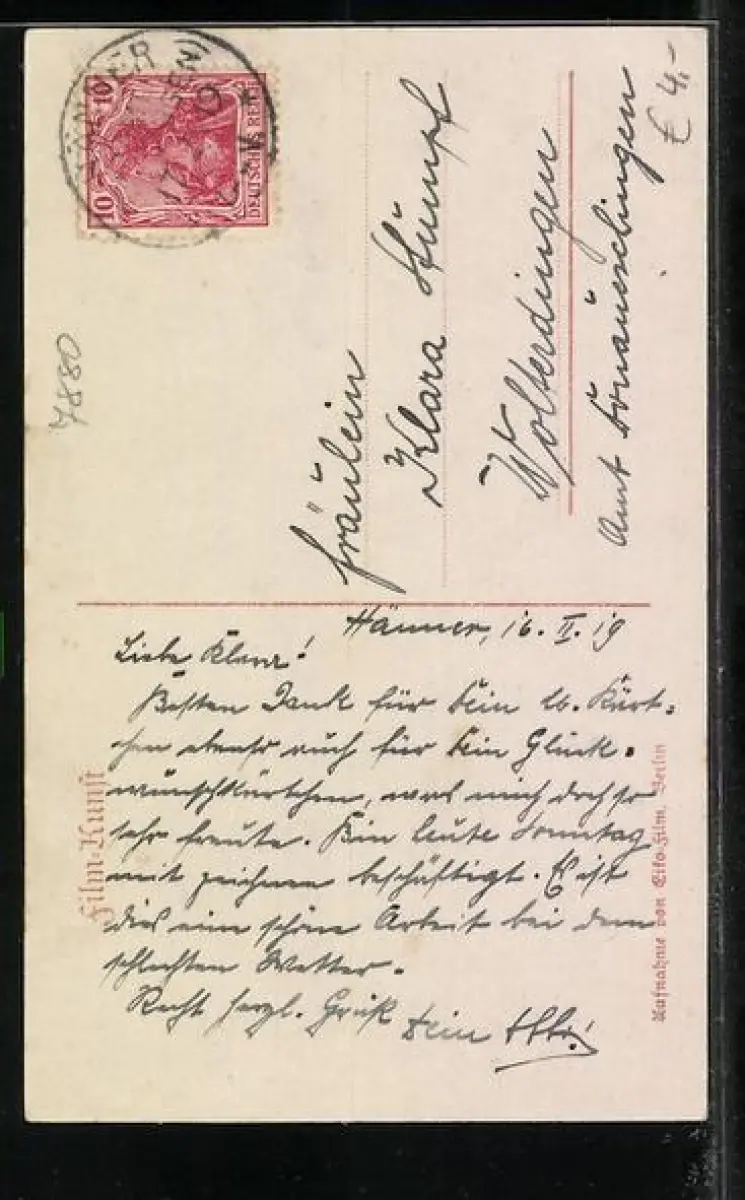 HÄNNER
17.
10 10
DEUTSCHES REICH
€ 4,-
7880
Fräulein
Klara Stumpf
Wolterdingen
Amt Donaueschingen
Hänner, 16. II. 19
Liebe Klara!
Besten Dank für Dein lb. Kärt-
chen ebenso auch für Dein Glück-
wunschkärtchen, was mich doch so
sehr freute. Bin heute Sonntag
mit zeichnen beschäftigt. Es ist
dies eine schöne Arbeit bei dem
schlechten Wetter.
Recht herzl. Gruß Dein
Film-Kunst
Aufnahme von Eiko-Film, Berlin